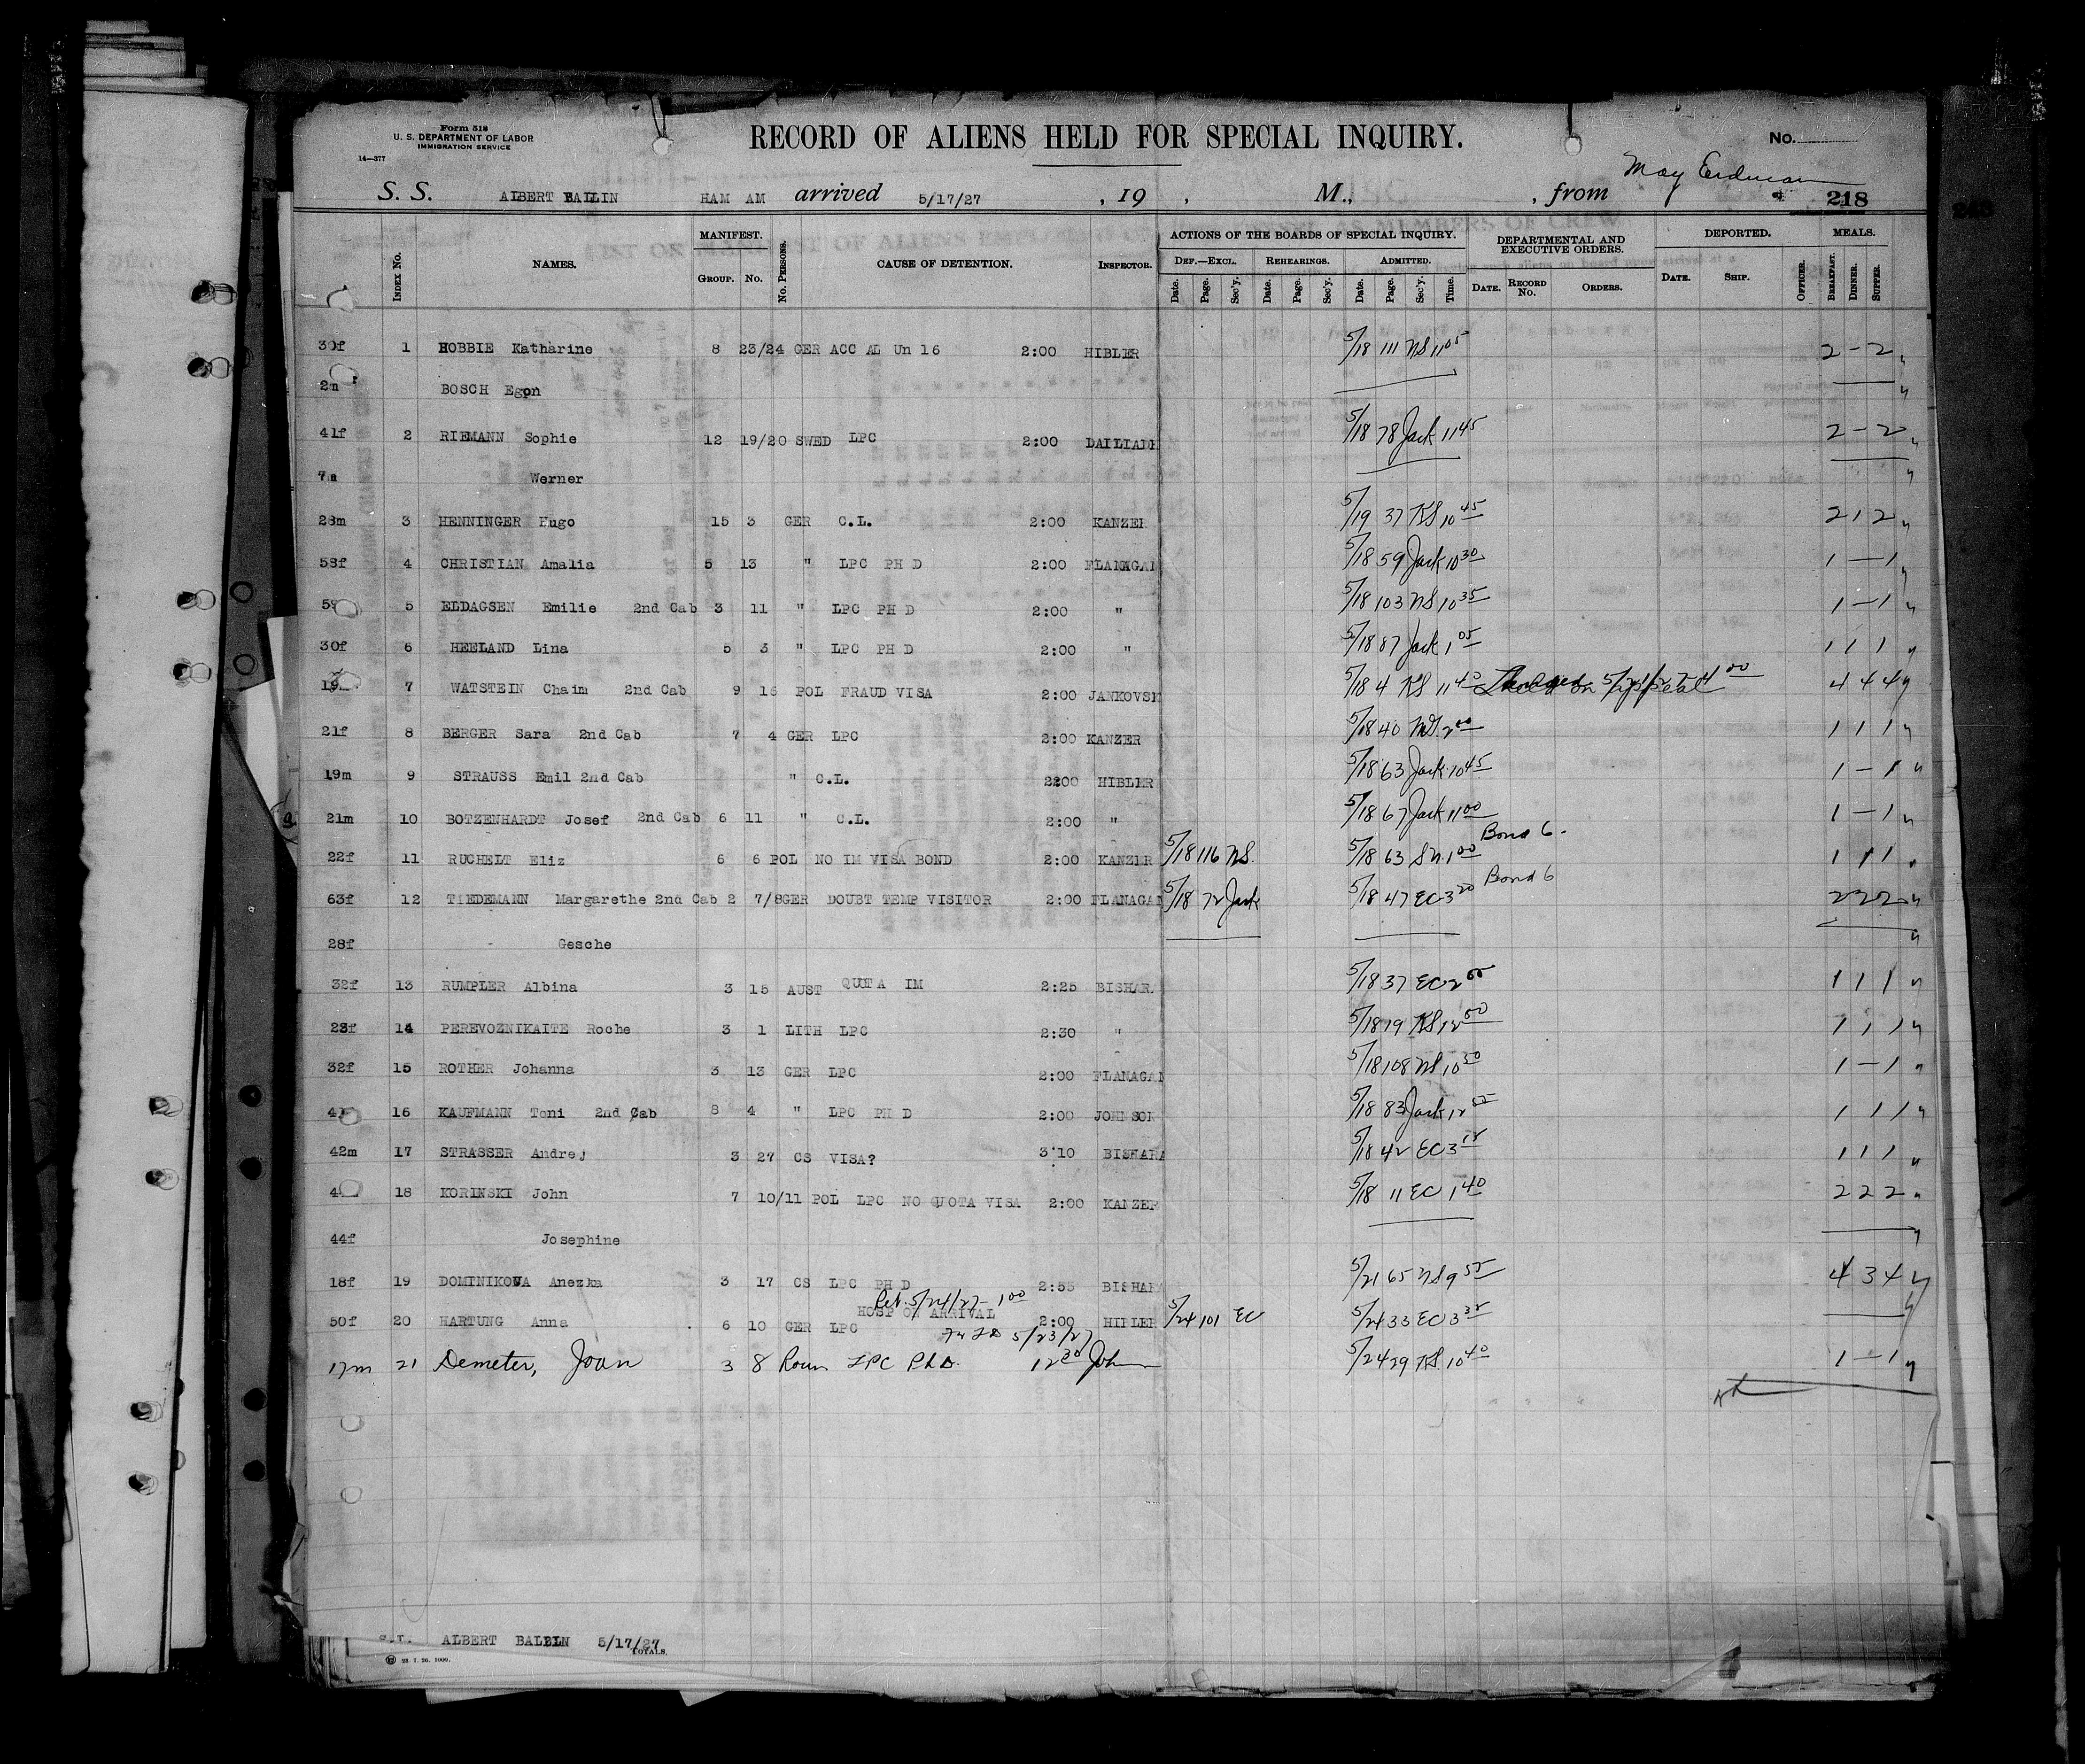 Form 518
U. S. DEPARTMENT OF LABOR
IMMIGRATION SERVICE
14—377
RECORD OF ALIENS HELD FOR SPECIAL INQUIRY.
No.
May Erdman
S. S. ALBERT BALLIN HAM AM arrived 5/17/27 , 19 , M., , from 218
INDEX No. NAMES. MANIFEST. GROUP. No. No. PERSONS. CAUSE OF DETENTION. INSPECTOR. ACTIONS OF THE BOARDS OF SPECIAL INQUIRY. DEF.—EXCL. Date. Page. Sec'y. REHEARINGS. Date. Page. Sec'y. ADMITTED. Date. Page. Sec'y. Time. DEPARTMENTAL AND EXECUTIVE ORDERS. DATE. RECORD No. ORDERS. DEPORTED. DATE. SHIP. OFFICER. MEALS. BREAKFAST. DINNER. SUPPER.
30f 1 HOBBIE Katharine 8 23/24 GER ACC AL Un 16 2:00 HIBLER 5/18 111 NS 11 05 2 – 2
2m BOSCH Egon
41f 2 RIEMANN Sophie 12 19/20 SWED LPC 2:00 5/18 78 Jack 11 45 2 – 2
7m Werner
28m 3 HENNINGER Hugo 15 3 GER C.L. 2:00 KANZER 5/19 37 KS 10 45 2 1 2
58f 4 CHRISTIAN Amalia 5 13 " LPC PH D 2:00 FLANAGAN 5/18 59 Jack 10 30 1 – 1
59 5 ELDAGSEN Emilie 2nd Cab 3 11 " LPC PH D 2:00 " 5/18 103 NS 10 35 1 – 1
30f 6 HEELAND Lina 5 3 " LPC PH D 2:00 " 5/18 87 Jack 1 05 1 1 1
19 7 WATSTEIN Chaim 2nd Cab 9 16 POL FRAUD VISA 2:00 JANKOVSK 5/18 4 KS 11 40 4 4 4
21f 8 BERGER Sara 2nd Cab 7 4 GER LPC 2:00 KANZER 5/18 40 2 00 1 1 1
19m 9 STRAUSS Emil 2nd Cab " C.L. 2200 HIBLER 5/18 63 Jack 10 45 1 – 1
21m 10 BOTZENHARDT Josef 2nd Cab 6 11 " C.L. 2:00 " 5/18 67 Jack 11 00 1 – 1
22f 11 RUCHELT Eliz 6 6 POL NO IM VISA BOND 2:00 KANZER 5/18 116 NS. 5/18 63 SN 1 00 Bond 6. 1 1 1
63f 12 TIEDEMANN Margarethe 2nd Cab 2 7/8 GER DOUBT TEMP VISITOR 2:00 FLANAGAN 5/18 72 Jack 5/18 47 EC 3 20 Bond 6 2 2 2
28f Gesche
32f 13 RUMPLER Albina 3 15 AUST QUOTA IM 2:25 BISHAR 5/18 37 EC 2 1 1 1
28f 14 PEREVOZNIKAITE Roche 3 1 LITH LPC 2:30 " 5/18 19 KS 12 1 1 1
32f 15 ROTHER Johanna 3 13 GER LPC 2:00 FLANAGAN 5/18 108 NS 10 30 1 – 1
41 16 KAUFMANN Toni 2nd Cab 8 4 " LPC PH D 2:00 JOHNSON 5/18 83 Jack 12 1 1 1
42m 17 STRASSER Andrej 3 27 CS VISA? 3'10 BISHARA 5/18 42 EC 3 15 1 1 1
4 18 KORINSKI John 7 10/11 POL LPC NO QUOTA VISA 2:00 KANZER 5/18 11 EC 1 40 2 2 2
44f Josephine
18f 19 DOMINIKOVA Anezka 3 17 CS LPC PH D 2:55 BISHAR 5/21 65 NS 9 55 4 3 4
Ret. 5/24/27 – 1 00
HOSP ON ARRIVAL
50f 20 HARTUNG Anna 6 10 GER LPC 2:00 HIBLER 5/24 101 EC 5/24 33 EC 3 35
5/23/27
17m 21 Demeter, Joan 3 8 Roum LPC PhD. 12 30 John 5/24 29 KS 10 40 1 – 1
S.I. ALBERT BALLIN 5/17/27
TOTALS.